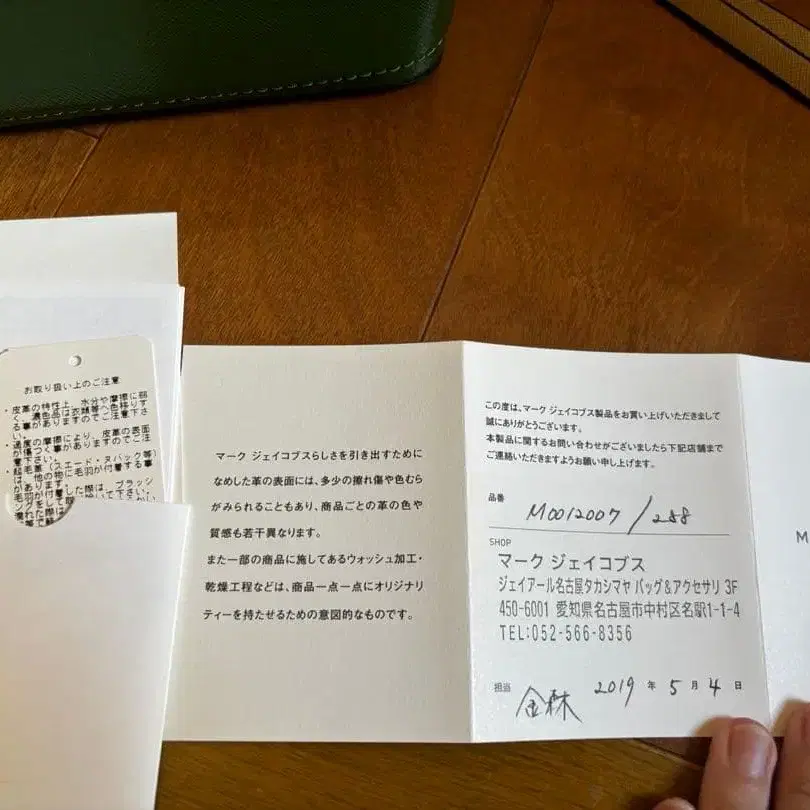 お取り扱い上のご注意
・皮革の特性上、水分や摩擦に弱
く、濃色品は衣類等へ色移りす
る事がありますのでご注意下さ
い。
・過度の摩擦により、皮革の表面
が傷つく事がありますのでご注
意下さい。
・起毛革（スエード・ヌバック等）
は、他の物に毛羽が付着する事
があります。
マーク ジェイコブスらしさを引き出すために
なめした革の表面には、多少の擦れ傷や色むら
がみられることもあり、商品ごとの革の色や
質感も若干異なります。
また一部の商品に施してあるウォッシュ加工・
乾燥工程などは、商品一点一点にオリジナリ
ティーを持たせるための意図的なものです。
この度は、マーク ジェイコブス製品をお買い上げいただきまして
誠にありがとうございます。
本製品に関するお問い合わせがございましたら下記店舗まで
ご連絡いただきますようお願い申し上げます。
品番 M0012007/288
SHOP
マーク ジェイコブス
ジェイアール名古屋タカシマヤ バッグ&アクセサリ 3F
450-6001 愛知県名古屋市中村区名駅1-1-4
TEL:052-566-8356
担当 金森 2019 年 5 月 4 日
M